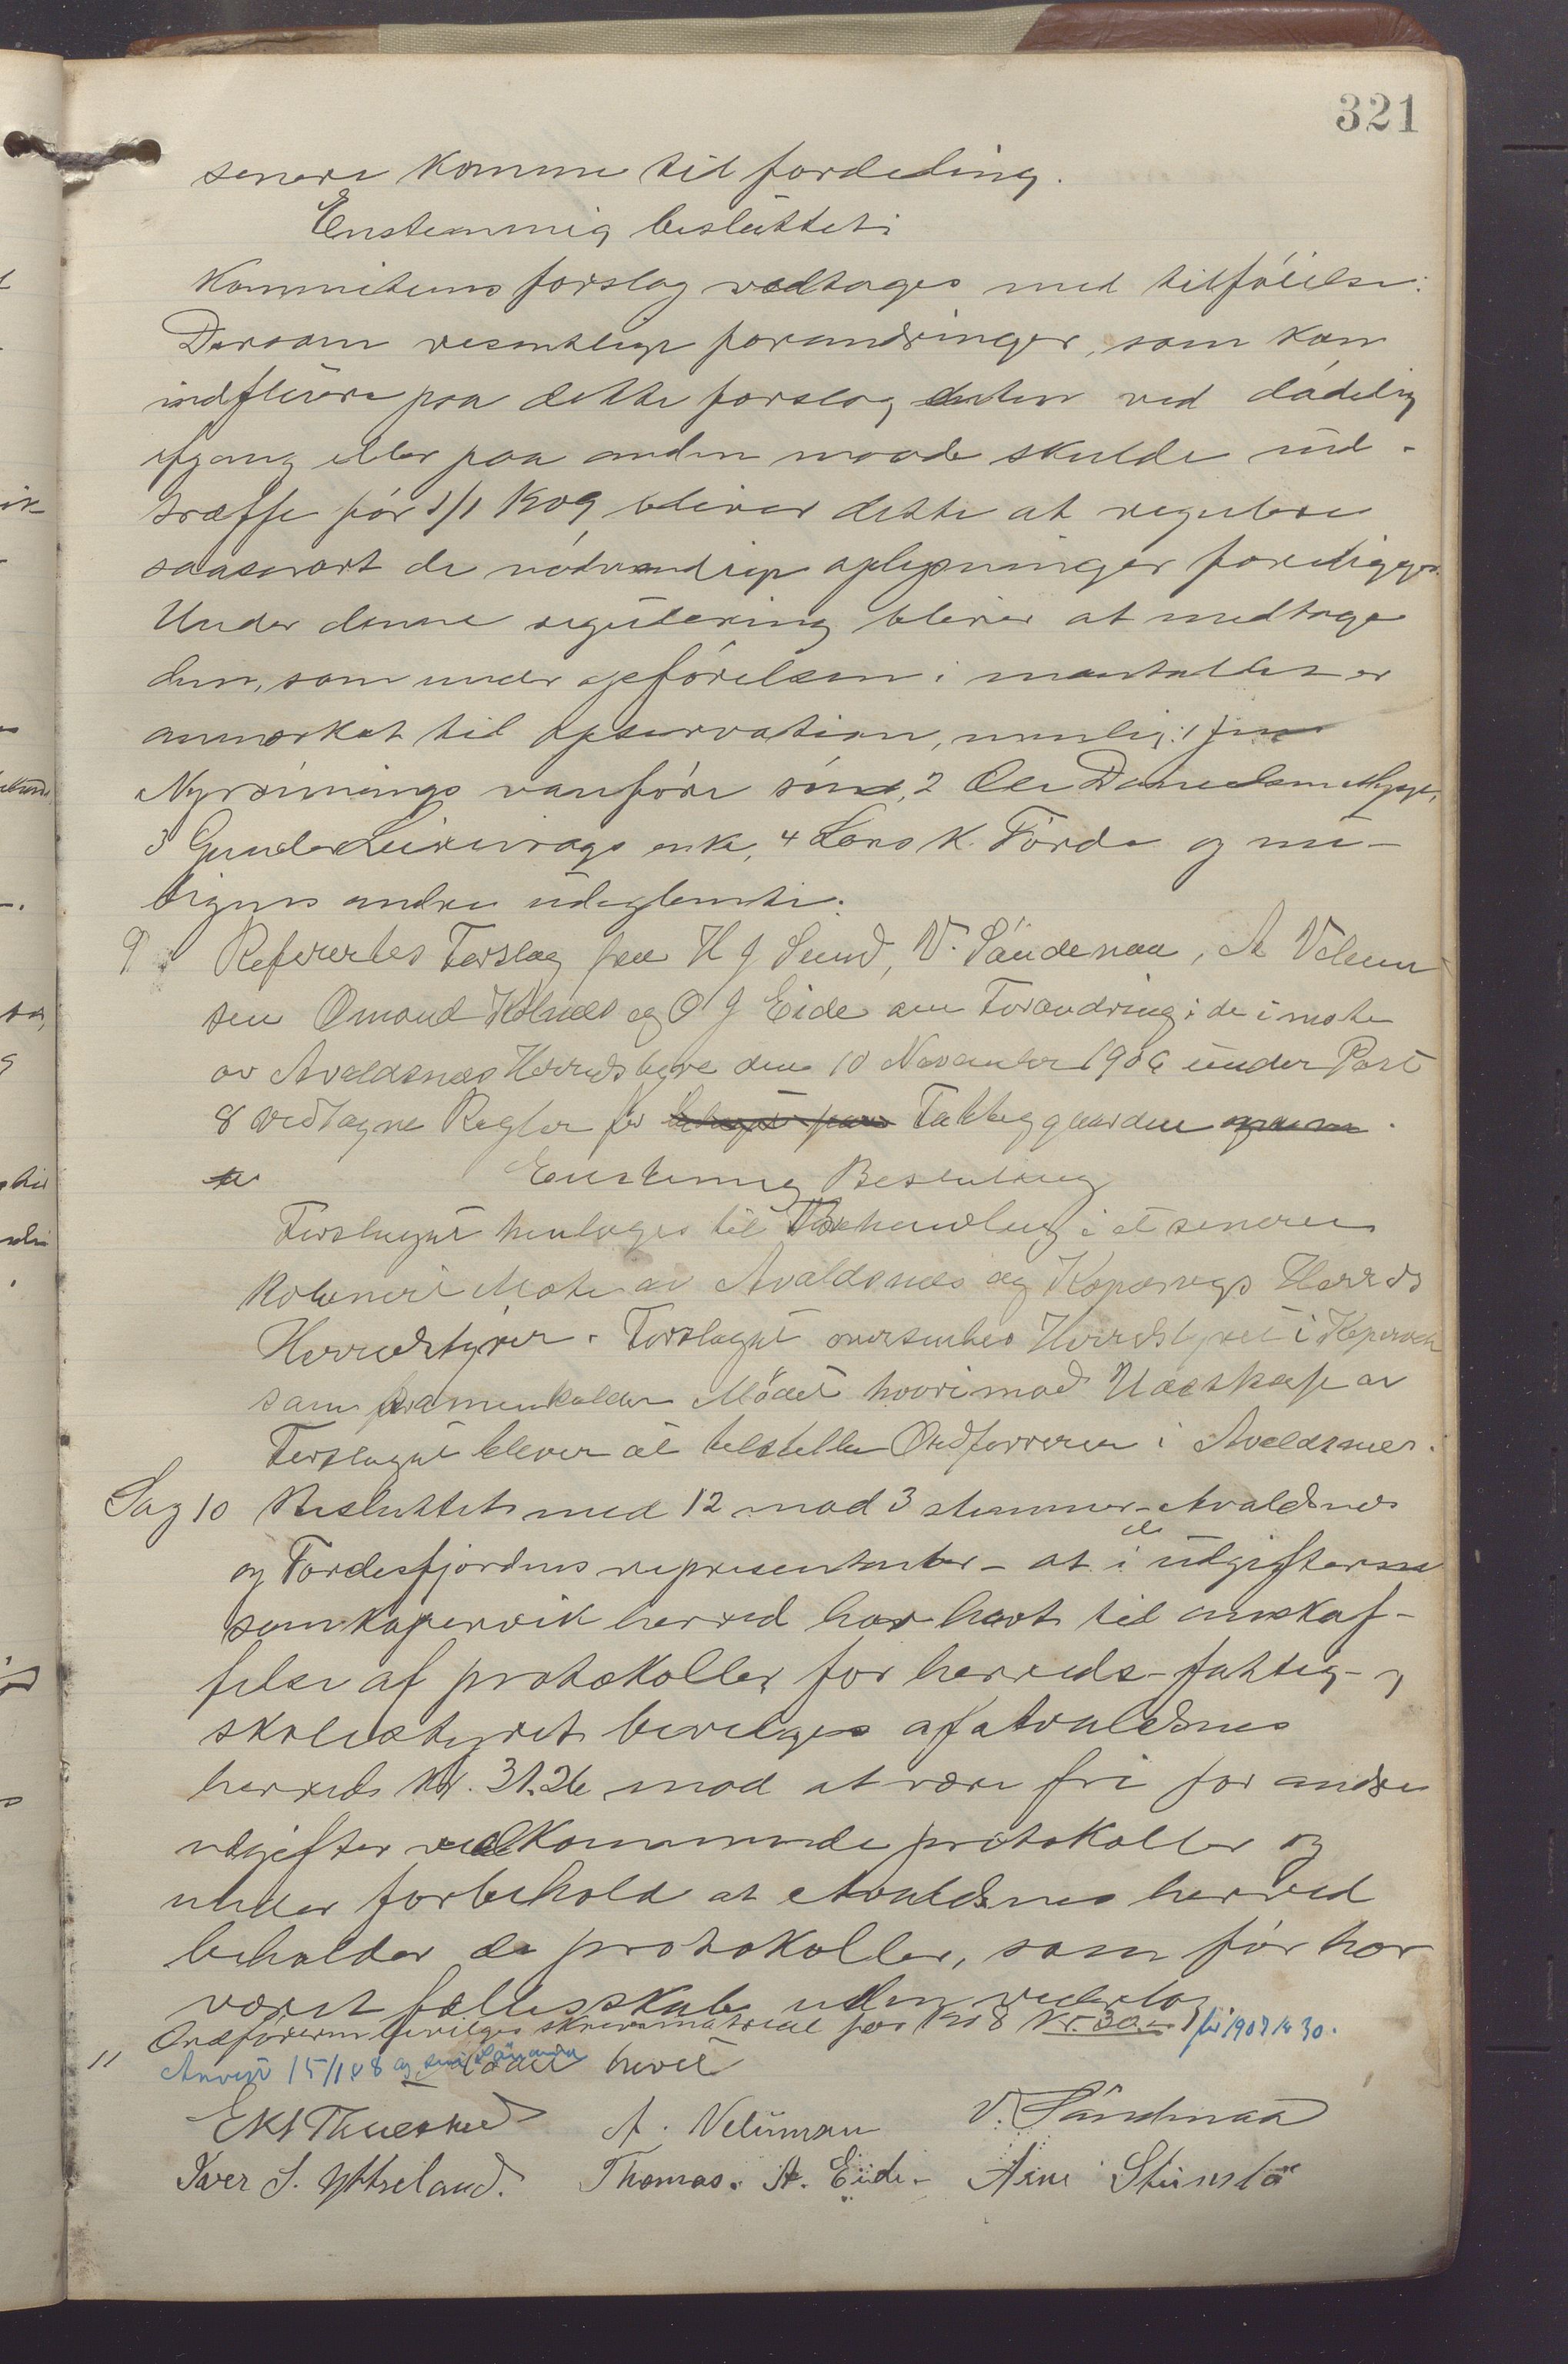 321
senere komme til fordeling.
Enstemmig besluttet:
Kommiteens forslag vedtages med tilföielse:
Dersom væsentlige forandringer, som kan
indfluere paa dette forslag enten ved dödelig
afgang eller paa anden maade skulde ind-
træffe för 1/1 1909, bliver dette at regulere
saasnart de nödvendige oplysninger foreligger.
Under denne regulering bliver at medtage
dem, som under opförelsen i mantallet er
anmærket til observation, nemlig: 1
vanföre sönd, 2 Ole Danielsen
3 Gunder enke, 4 Lars K. Förde og mu-
ligens andre udeglemte.
9 Referertes Forslag fra H J Sund, V. Söndenaa, A Velum
sen Omond Kolnes og O J Eide om Forandring i de i møte
av Avaldsnes Herredstyre den 10 November 1906 under Post
8 vedtagne Regler for Fattiggaarden
Enstemmig Beslutning
Forslaget henlægges til Behandling i et senere
kombinert Møte av Avaldsnes og Kopervigs Herreds
Herredstyrer. Forslaget oversendes Herredstyret i Kopervik
som sammenkalder Mödet hvorimod Udskrift av
Forslaget bliver at tilstille Ordføreren i Avaldsnes.
Sag 10 Besluttet med 12 mod 3 stemmer - Avaldsnes
og Fördesfjordens representanter - at i de udgifterne
som Kopervik herred har havt til anskaf-
felse af protokoller for herreds- fattig- og
skolestyret bevilges af Avaldsnes
herreds Kr. 31.26 mod at være fri for andre
udgifter vedkommende protokoller og
under forbehold at Avaldsnes herred
beholder de protokoller, som för har
været fællesskab uden vederlag
11 Ordföreren bevilges skrivematriell for 1908 Kr. 30.- for 1907 kr 30.
Anvist 15/1 08 og
Mödet hævet
A. Velumsen V. Söndenaa
Iver S. Ytreland. Thomas. A. Eide - Arne Stensló